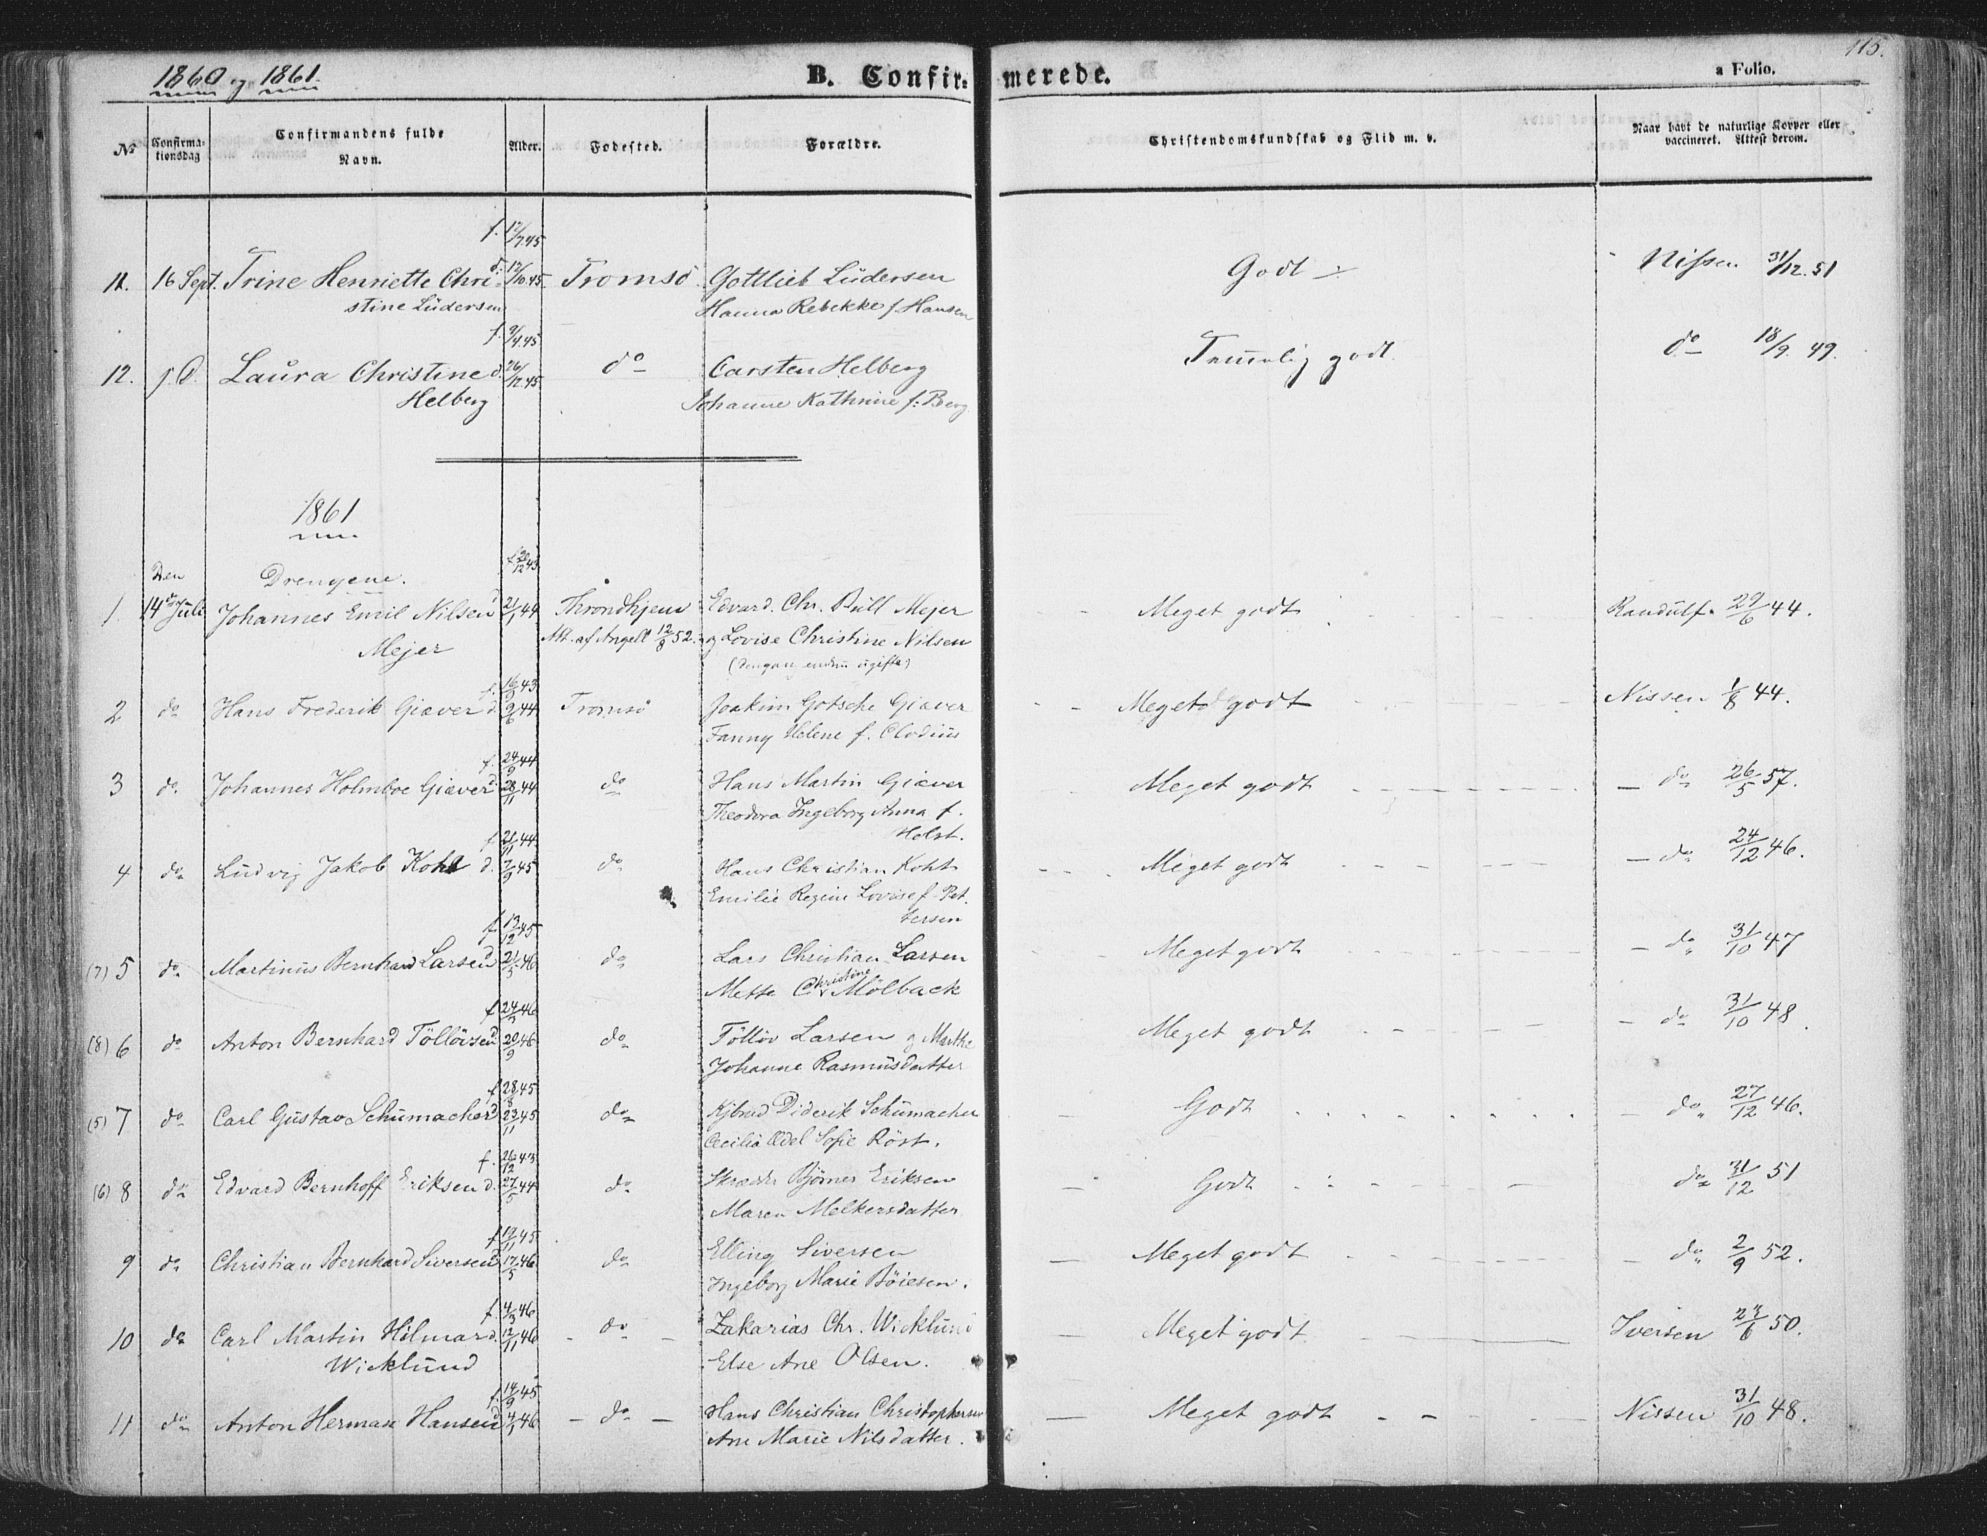 1860 og 1861.
B. Confirmerede.
115.
a Folio.
No
Confirmationsdag
Confirmandens fulde Navn.
Alder.
Fødested.
Forældre.
Christendomskundskab og Flid m. v.
Naar havt de naturlige Kopper eller vaccineret. Attest derom.
f. 12/7 45
11. 16 Sept. Trine Henriette Chri- d. 12/10 45. Tromsö Gottlieb Lüdersen Godt Nissen 31/12. 51
stine Lüdersen Hanna Rebekke f. Hansen
f. 9/4 45
12. Laura Christine d. 26/12 45 do Carsten Helberg Temmelig godt. do 18/9. 49.
Helberg Johanne Kathrine f: Berg
1861
Den Drengene. f 20/12 43
1 14de Juli Johannes Emil Nilsen d 21/1 44 Throndhjem Edvard. Chr. Bull Mejer Meget godt Randulf 29/6 44.
Mejer Att. af Angell 12/8 52. og Lovise Christine Nilsen
(dengang endnu ugifte)
f. 16/9 43
2 do Hans Frederik Giæver d. 9/6 44 Tromsö Joakim Gotsche Giæver Meget godt Nissen 1/8 44.
Fanny Helene f. Clodius
f. 24/9 44
3 do Johannes Holmboe Giæver d 28/11 44 do Hans Martin Giæver Meget godt do 26/5 57.
Theodora Ingeborg Anna f.
Holst.
f 21/11 44
4 do Ludvig Jakob Koht d. 2/3 45 do Hans Christian Koht Meget godt do 24/12 46.
Emilie Regine Lovise f. Pet
tersen
f 13/12 45
(7) 5 do Martinus Bernhard Larsen d 21/5 46 do Lars Christian Larsen Meget godt do 31/10 47
Mette Christine Mölback
f 24/5 46
(8) 6 do Anton Bernhard Töllövsen d 20/9 46 do Töllöv Larsen og Marthe Meget godt do 31/10 48.
Johanne Rasmusdatter
f 28/8 45
(5) 7 do Carl Gustav Schumacher d 23/11 45 do Diderik Schumacher Godt do 27/12 46.
Cecilia Edel Sofie Röst.
f. 26/12 43
(6) 8 do Edvard Bernhoff Eriksen d. 27/5 44 do Björner Eriksen Godt do 31/12 51
Maren Melkersdatter
f 19/11 45
9 do Christian Bernhard Siversen d 17/5 46 do Elling Siversen Meget godt do 2/9 52.
Ingeborg Marie Böiesen.
f 4/3 46
10 do Carl Martin Hilmar d. 12/11 46 do Zakarias Chr. Wicklund Meget godt Iversen 23/6 50.
Wicklund Else Ane Olsen.
f. 14/9 45
11 do Anton Herman Hansen d 4/1 46 do Hans Christian Christophersen Meget godt Nissen 31/10 48.
Ane Marie Nilsdatter.